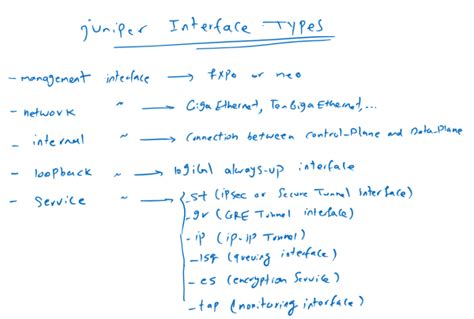 juniper Interface Types
- management interface → fxpo or meo
- network ~ → GigaEthernet, TenGigaEthernet,...
- internal ~ → Connection between control-Plane and Data-Plane
- loopback ~ → logical always-up interface
- Service ~ → - st (ipsec or Secure Tunnel Interface)
- gr (GRE Tunnel interface)
- ip (ip-ip Tunnel)
- lsq (queuing interface)
- es (encryption Service)
- tap (monitoring interface)